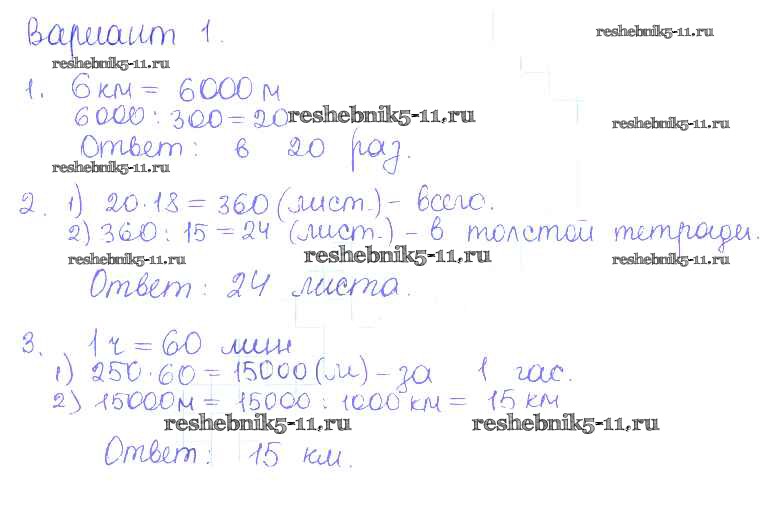 Вариант 1.
reshebnik5-11.ru
reshebnik5-11.ru
1. 6 км = 6000 м
6000 : 300 = 20
reshebnik5-11.ru
reshebnik5-11.ru
Ответ: в 20 раз.
reshebnik5-11.ru
2. 1) 20·18 = 360 (лист.) - всего.
2) 360 : 15 = 24 (лист.) - в толстой тетради.
reshebnik5-11.ru
reshebnik5-11.ru
reshebnik5-11.ru
Ответ: 24 листа.
3. 1 ч = 60 мин
1) 250·60 = 15000 (м) - за 1 час.
2) 15000м = 15000 : 1000 км = 15 км
reshebnik5-11.ru
reshebnik5-11.ru
Ответ: 15 км.